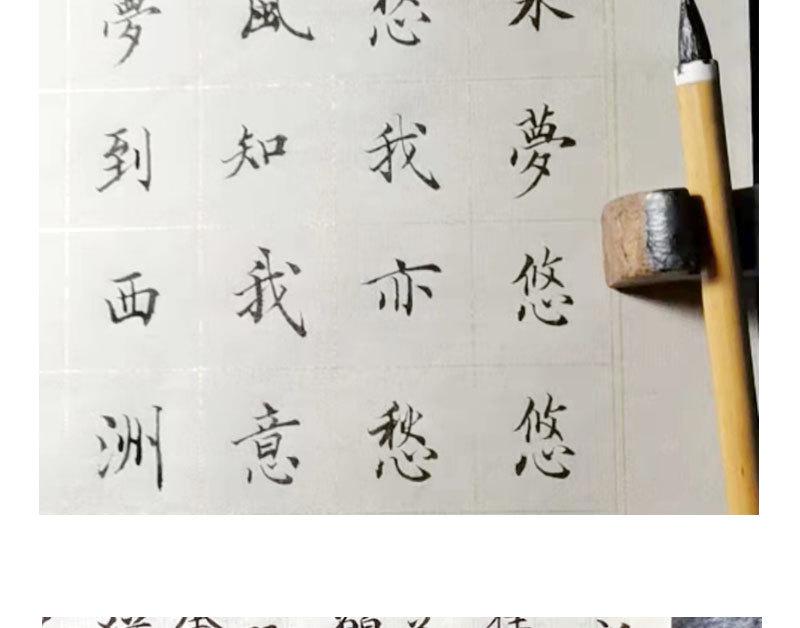 水夢悠悠
愁我亦愁
風知我意
夢到西洲